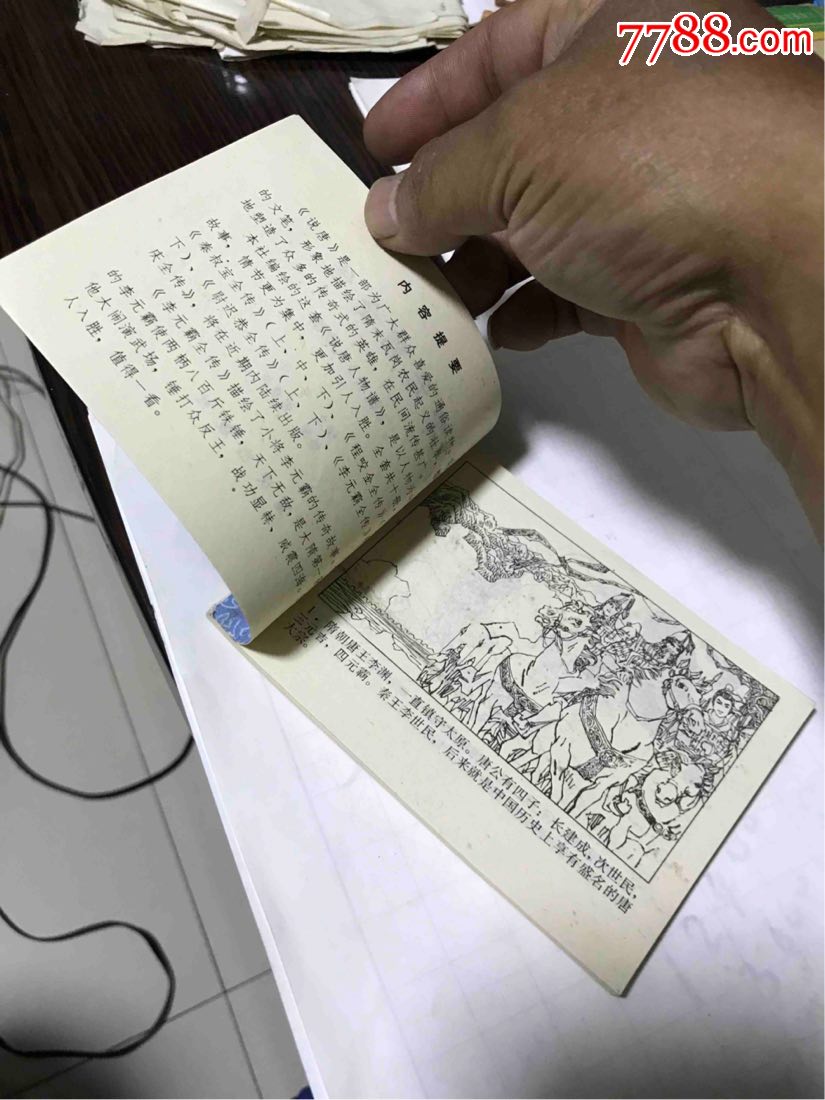 7788.com
内容提要
《说唐》是一部为广大群众喜爱的通俗读物
的文笔,形象地描绘了隋末瓦岗农民起义的壮
地塑造了众多的传奇式的英雄,在民间流传甚广
本社编绘的这套《说唐人物谱》,是以人物为
故事,情节更为集中,更加引人入胜。全套共十册
《秦叔宝全传》(上、中、下)、《程咬金全传》
下)、《尉迟恭全传》(上、下)、《李元霸全传》
庆全传》,将在近期内陆续出版。
《李元霸全传》描绘了小将李元霸的传奇故事。
的李元霸使两柄八百斤铁锤,天下无敌,是大隋第一
他大闹演武场,锤打众反王,战功显赫,威震四海,
人入胜,值得一看。
1.隋朝唐王李渊,一直镇守太原。唐公有四子:长建成,次世民,
三元吉,四元霸。秦王李世民,后来就是中国历史上享有盛名的唐
太宗。